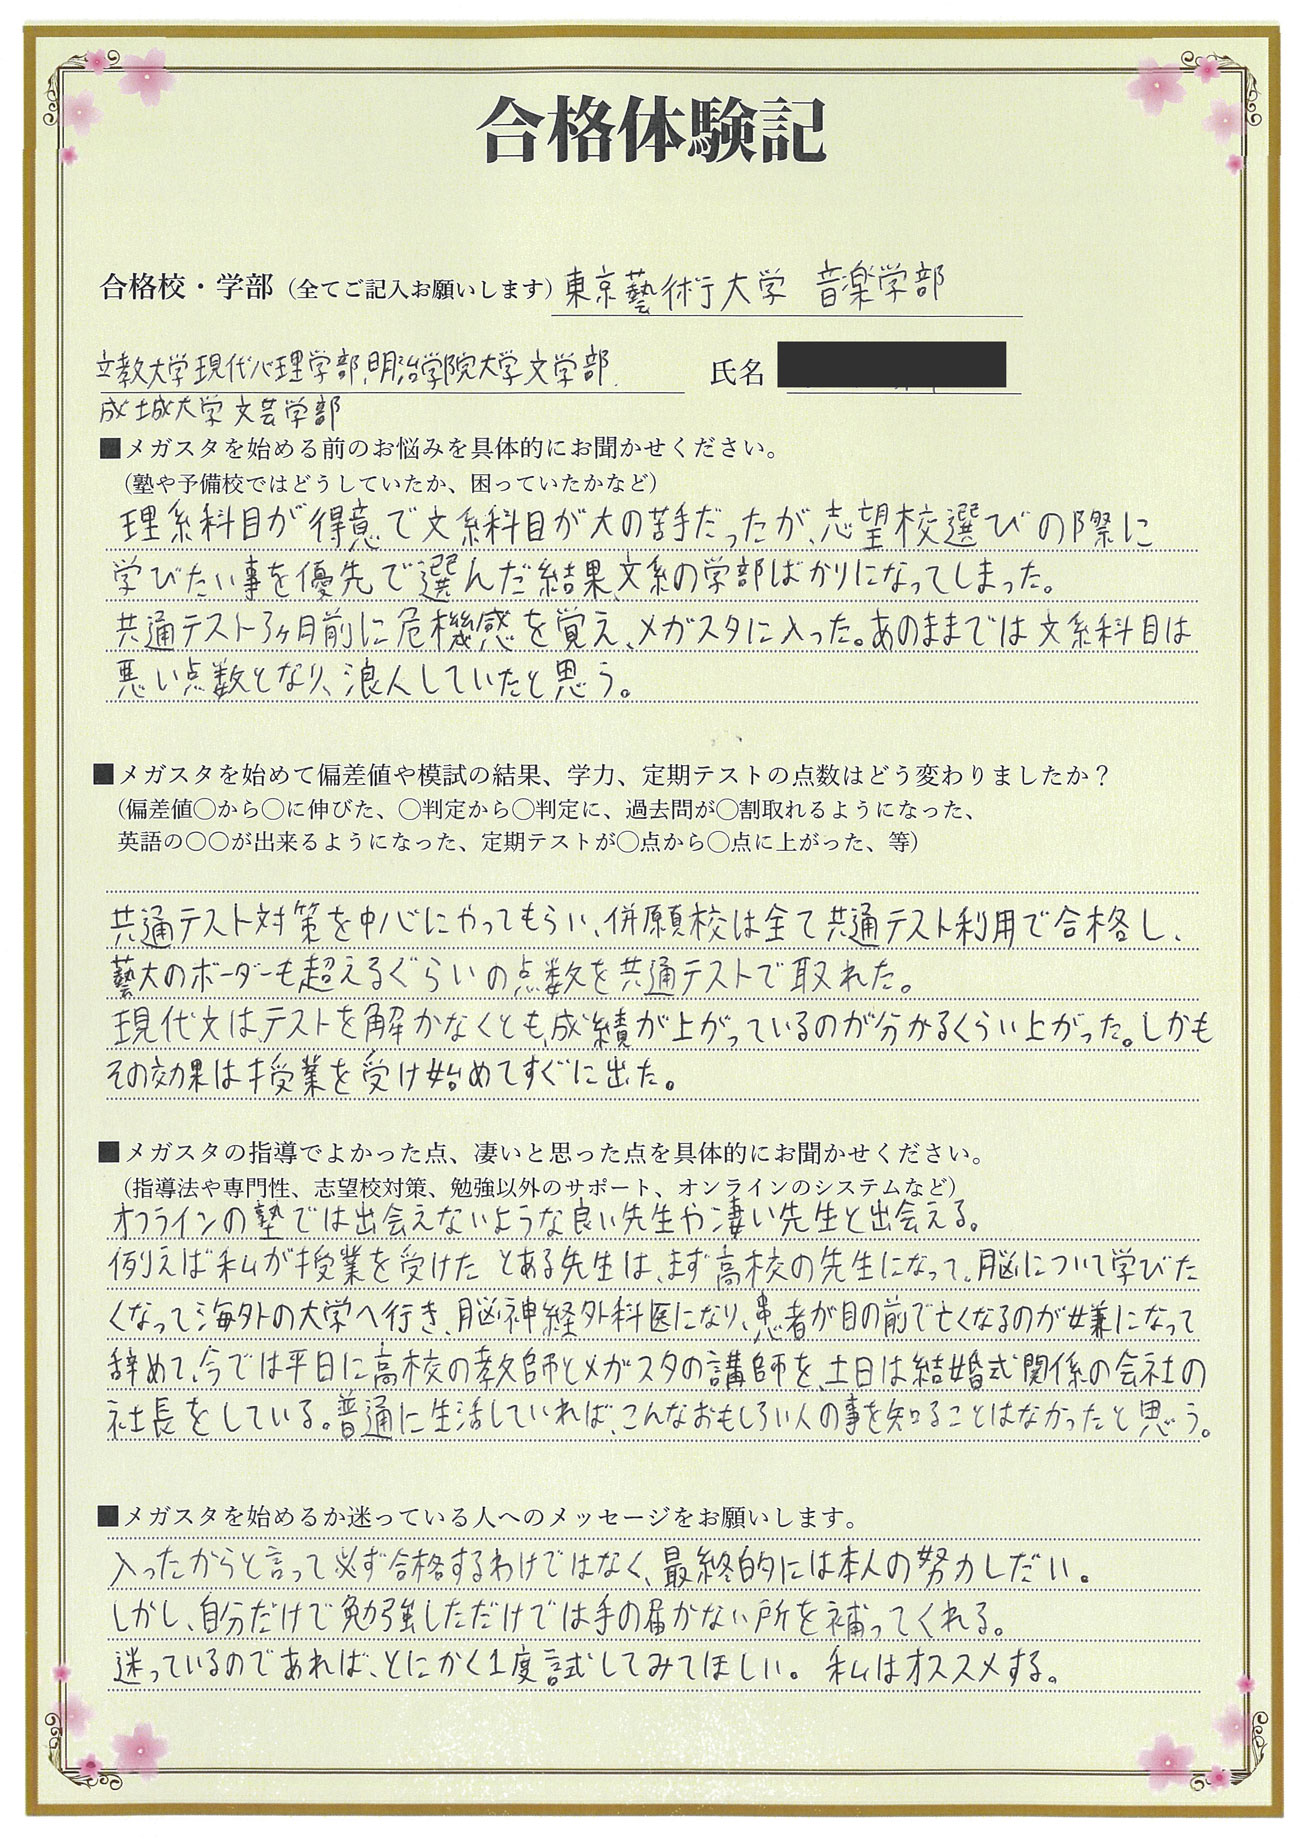 合格体験記
合格校・学部（全てご記入お願いします）東京藝術大学 音楽学部
立教大学現代心理学部、明治学院大学文学部、
氏名
成城大学文芸学部
■メガスタを始める前のお悩みを具体的にお聞かせください。
（塾や予備校ではどうしていたか、困っていたかなど）
理系科目が得意で文系科目が大の苦手だったが、志望校選びの際に
学びたい事を優先で選んだ結果、文系の学部ばかりになってしまった。
共通テスト3ヶ月前に危機感を覚え、メガスタに入った。あのままでは文系科目は
悪い点数となり、浪人していたと思う。
■メガスタを始めて偏差値や模試の結果、学力、定期テストの点数はどう変わりましたか？
（偏差値〇から〇に伸びた、〇判定から〇判定に、過去問が〇割取れるようになった、
英語の〇〇が出来るようになった、定期テストが〇点から〇点に上がった、等）
共通テスト対策を中心にやってもらい、併願校は全て共通テスト利用で合格し、
藝大のボーダーも超えるぐらいの点数を共通テストで取れた。
現代文は、テストを解かなくとも、成績が上がっているのが分かるくらい上がった。しかも
その効果は授業を受け始めてすぐに出た。
■メガスタの指導でよかった点、凄いと思った点を具体的にお聞かせください。
（指導法や専門性、志望校対策、勉強以外のサポート、オンラインのシステムなど）
オフラインの塾では出会えないような良い先生や凄い先生と出会える。
例えば私が授業を受けた とある先生は、まず高校の先生になって、脳について学びた
くなって海外の大学へ行き、脳神経外科医になり、患者が目の前で亡くなるのが嫌になって
辞めて、今では平日に高校の教師とメガスタの講師を、土日は結婚式関係の会社の
社長をしている。普通に生活していれば、こんなおもしろい人の事を知ることはなかったと思う。
■メガスタを始めるか迷っている人へのメッセージをお願いします。
入ったからと言って必ず合格するわけではなく、最終的には本人の努力しだい。
しかし、自分だけで勉強しただけでは手の届かない所を補ってくれる。
迷っているのであれば、とにかく1度試してみてほしい。私はオススメする。